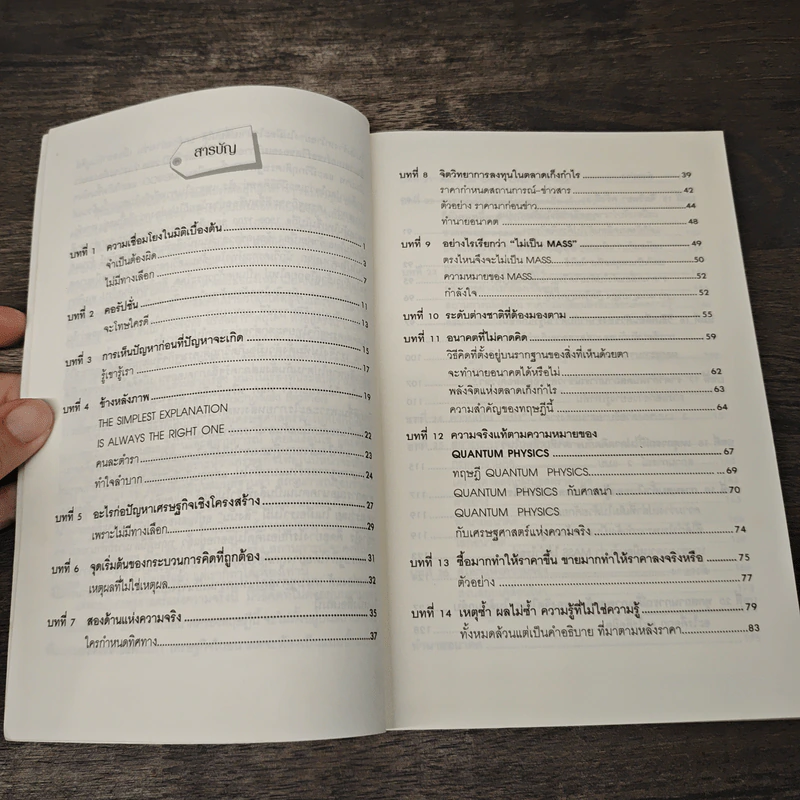 สารบัญ
บทที่ 1 ความเชื่อมโยงในมิติเบื้องต้น 1
จำเป็นต้องผิด 3
ไม่มีทางเลือก 7
บทที่ 2 คอรัปชั่น 11
จะโทษใครดี 13
บทที่ 3 การเห็นปัญหาก่อนที่ปัญหาจะเกิด 15
รู้เขารู้เรา 17
บทที่ 4 ข้างหลังภาพ 19
THE SIMPLEST EXPLANATION
IS ALWAYS THE RIGHT ONE 22
คนละตำรา 23
ทำใจลำบาก 24
บทที่ 5 อะไรก่อปัญหาเศรษฐกิจเชิงโครงสร้าง 27
เพราะไม่มีทางเลือก 29
บทที่ 6 จุดเริ่มต้นของกระบวนการคิดที่ถูกต้อง 31
เหตุผลที่ไม่ใช่เหตุผล 32
บทที่ 7 สองด้านแห่งความจริง 35
ใครกำหนดทิศทาง 37
บทที่ 8 จิตวิทยาการลงทุนในตลาดเก็งกำไร 39
ราคากำหนดสถานการณ์-ข่าวสาร 42
ตัวอย่าง ราคามาก่อนข่าว 44
ทำนายอนาคต 48
บทที่ 9 อย่างไรเรียกว่า "ไม่เป็น MASS" 49
ตรงไหนจึงจะไม่เป็น MASS 50
ความหมายของ MASS 52
กำลังใจ 52
บทที่ 10 ระดับต่างชาติที่ต้องมองตาม 55
บทที่ 11 อนาคตที่ไม่คาดคิด 59
วิธีคิดที่ตั้งอยู่บนรากฐานของสิ่งที่เห็นด้วยตา
จะทำนายอนาคตได้หรือไม่ 62
พลังจิตแห่งตลาดเก็งกำไร 63
ความสำคัญของทฤษฎีนี้ 64
บทที่ 12 ความจริงแท้ตามความหมายของ
QUANTUM PHYSICS 67
ทฤษฎี QUANTUM PHYSICS 69
QUANTUM PHYSICS กับศาสนา 70
QUANTUM PHYSICS
กับเศรษฐศาสตร์แห่งความจริง 74
บทที่ 13 ซื้อมากทำให้ราคาขึ้น ขายมากทำให้ราคาลงจริงหรือ 75
ตัวอย่าง 77
บทที่ 14 เหตุซ้ำ ผลไม่ซ้ำ ความรู้ที่ไม่ใช่ความรู้ 79
ทั้งหมดล้วนแต่เป็นคำอธิบาย ที่มาตามหลังราคา 83